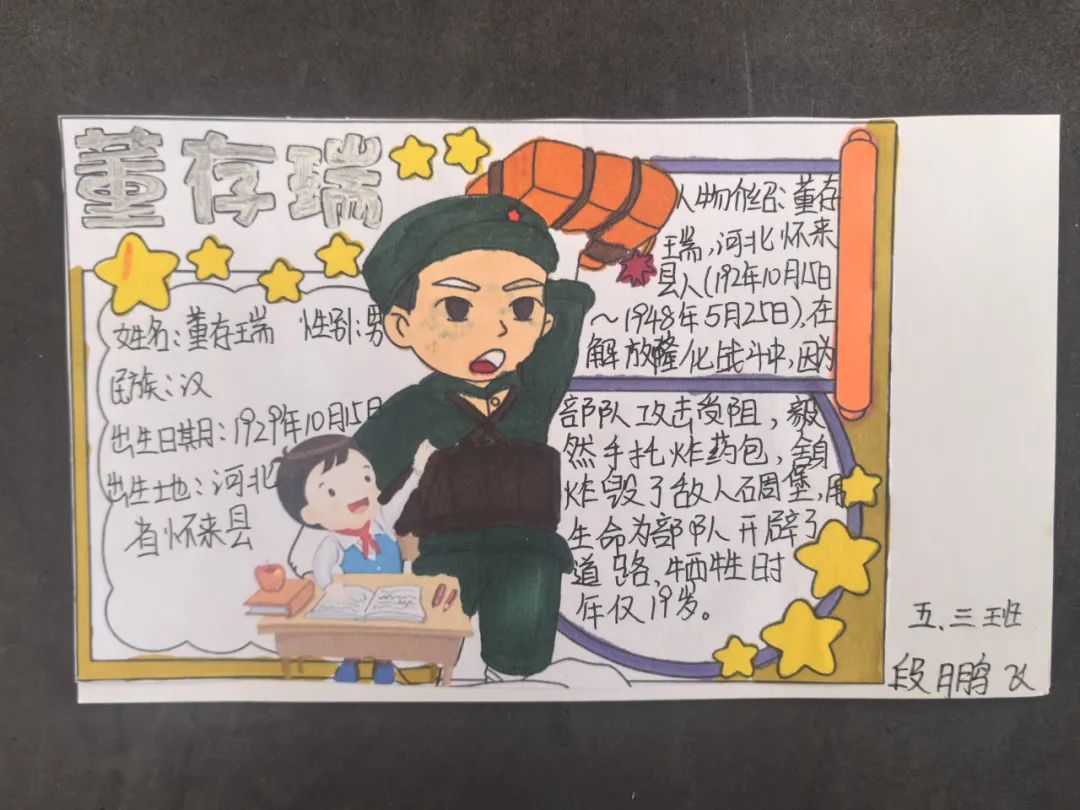 董存瑞
姓名:董存瑞 性别:男
民族:汉
出生日期:1929年10月15日
出生地:河北
省怀来县
人物介绍:董存
瑞,河北怀来
县人(192年10月15日
～1948年5月25日),在
解放隆化战斗中,因为
部队攻击受阻,毅
然手托炸药包,舍身
炸毁了敌人碉堡,用
生命为部队开辟了
道路,牺牲时
年仅19岁。
五.三班
段鹏飞